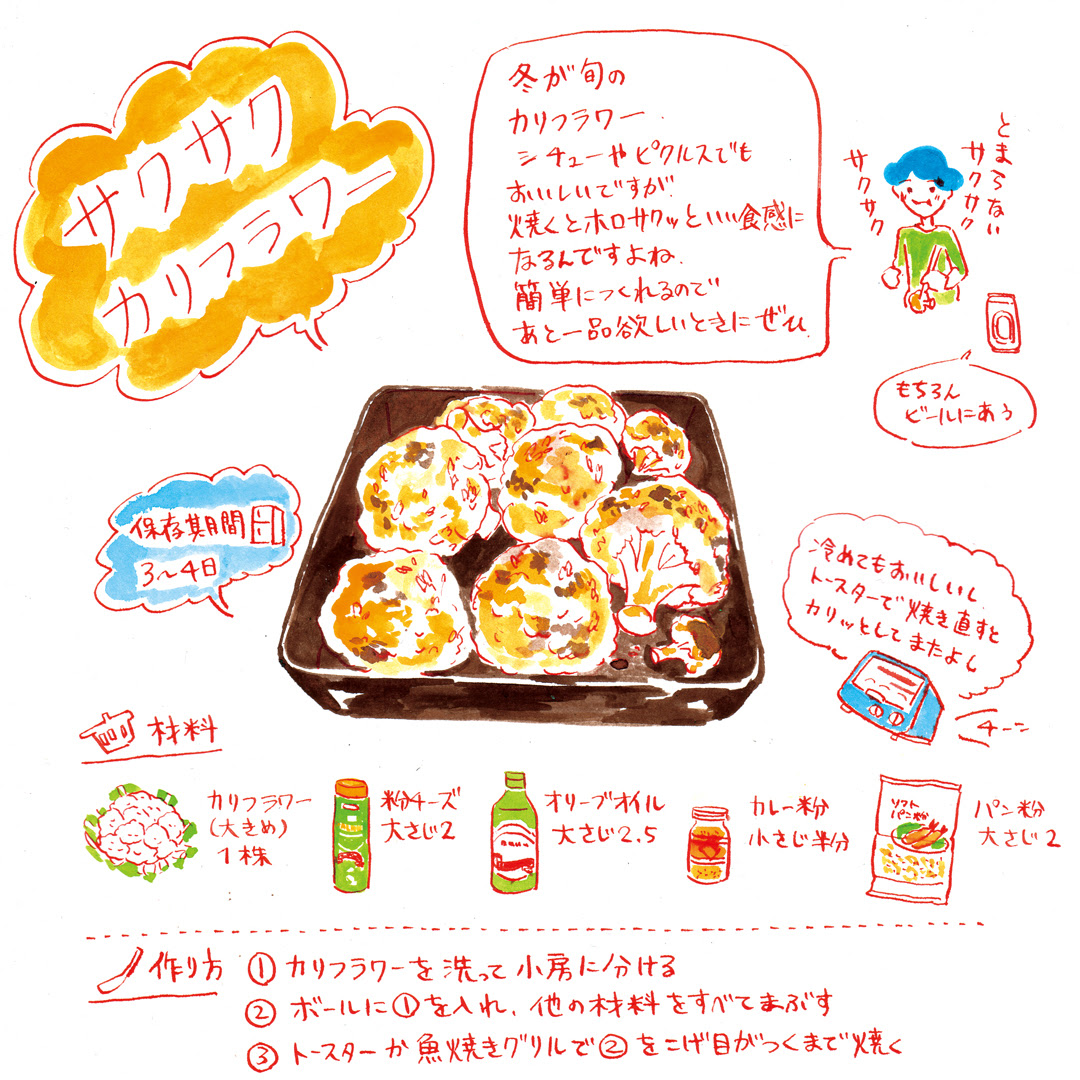 サクサク
カリフラワー
冬が旬の
カリフラワー
シチューやピクルスでも
おいしいですが
焼くとホロサクッといい食感に
なるんですよね、
簡単につくれるので
あと一品欲しいときにぜひ
とまらない
サクサク
サクサク
もちろん
ビールにあう
保存期間
3〜4日
冷めてもおいしいし、
トースターで焼き直すと
カリッとしてまたよし
チーン
材料
カリフラワー
(大きめ)
1株
粉チーズ
大さじ2
オリーブオイル
大さじ2.5
カレー粉
小さじ半分
ソフト
パン粉
パン粉
大さじ2
作り方
①カリフラワーを洗って小房に分ける
②ボールに①を入れ、他の材料をすべてまぶす
③トースターか魚焼きグリルで②をこげ目がつくまで焼く